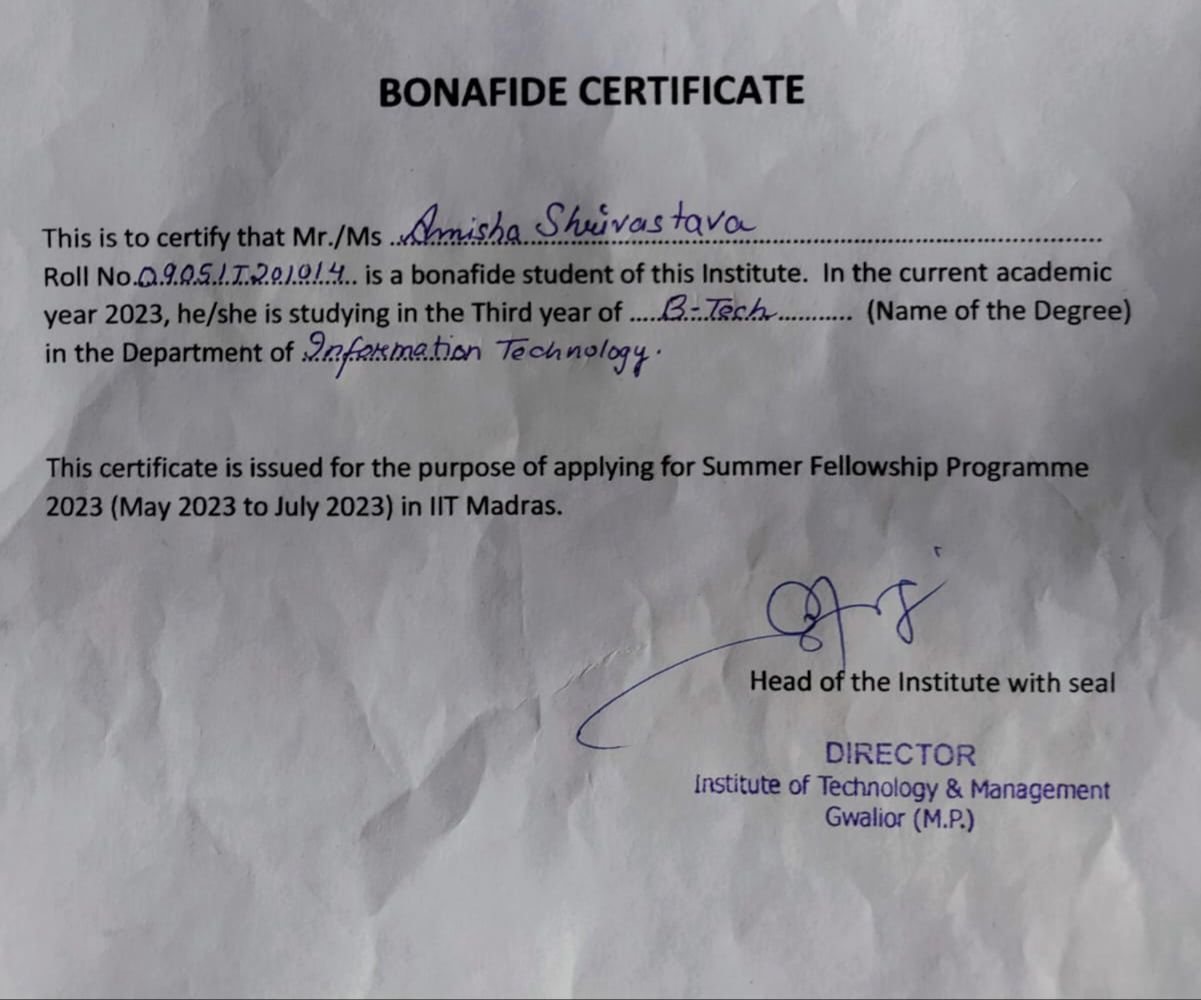 BONAFIDE CERTIFICATE
This is to certify that Mr./Ms ..Amisha Shrivastava..........
Roll No.0905IT201014.. is a bonafide student of this Institute. In the current academic
year 2023, he/she is studying in the Third year of .....B-Tech........... (Name of the Degree)
in the Department of Information Technology.
This certificate is issued for the purpose of applying for Summer Fellowship Programme
2023 (May 2023 to July 2023) in IIT Madras.
Head of the Institute with seal
DIRECTOR
Institute of Technology & Management
Gwalior (M.P.)